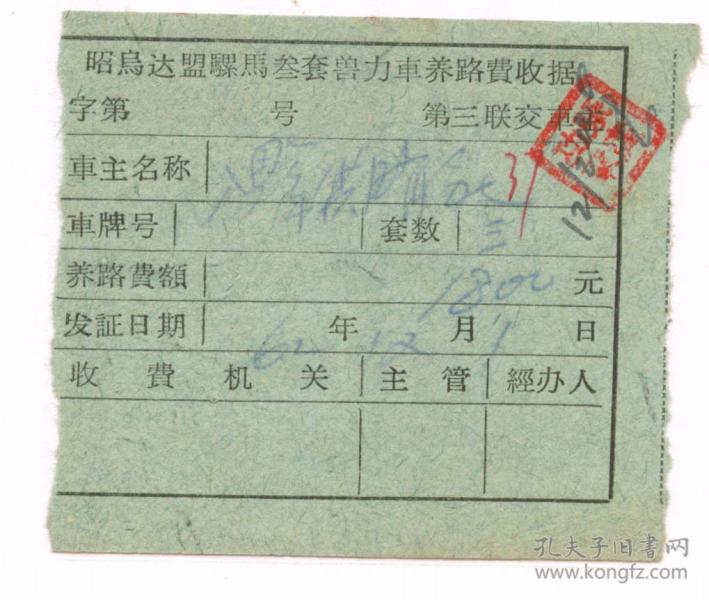 昭烏达盟騾馬叁套兽力車养路費收据
字第 号 第三联交車主
車主名称
車牌号 套数 三
养路費額 1800 元
发証日期 62 年 12 月 1 日
收費机关 主管 經办人
孔夫子旧書网
www.kongfz.com